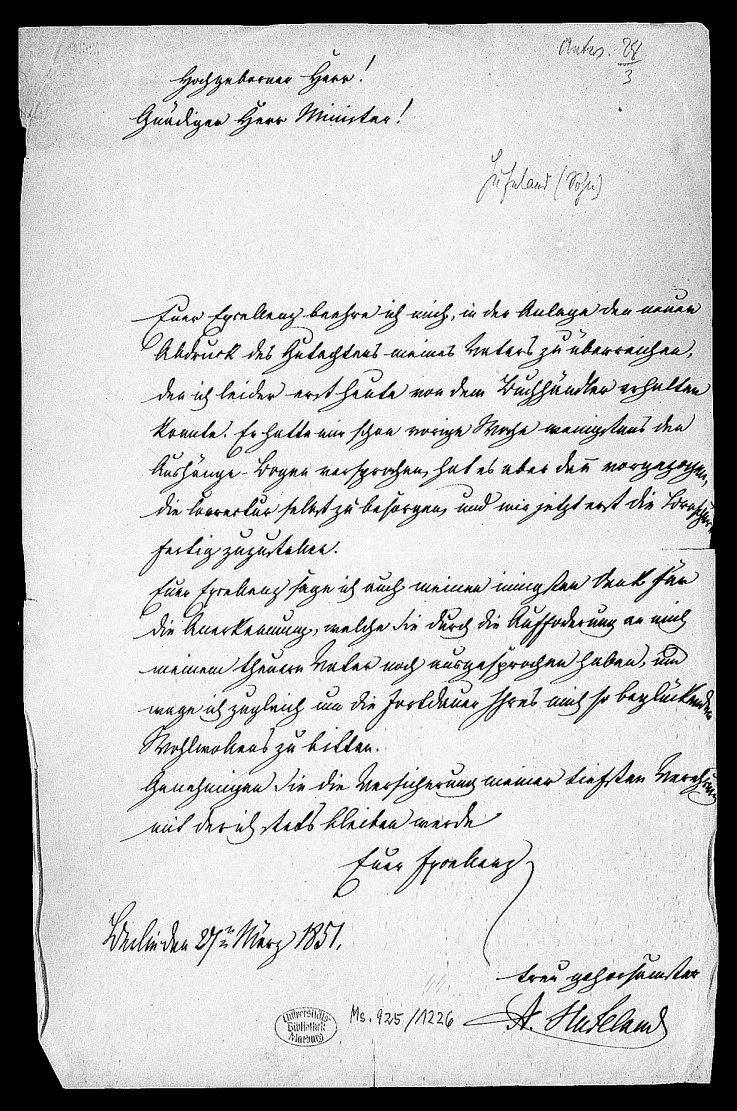 Antw. 28/3
Hochgeborner Herr!
Gnädiger Herr Minister!
Hufeland (Sohn)
Euer Excellenz beehre ich mich, in der Anlage den neuen
Abdruck des Gutachtens meines Vaters zu überreichen,
den ich leider erst heute von dem Buchhändler erhalten
konnte. Er hatte mir schon vorige Woche wenigstens den
Aushänge-Bogen versprochen, hat es aber dann vorgezogen,
die Correctur selbst zu besorgen, und mir jetzt erst die
fertig zuzustellen.
Euer Excellenz sage ich auch meinen innigsten Dank für
die Anerkennung, welche Sie durch die Aufforderung an mich
meinem theuern Vater noch ausgesprochen haben, und
wage ich zugleich um die Fortdauer Ihres mich so beglückenden
Wohlwollens zu bitten.
Genehmigen Sie die Versicherung meiner tiefsten Verehrung
mit der ich stets bleiben werde
Euer Excellenz
Berlin den 27n März 1851.
treu gehorsamster
A. Hufeland
Universitäts-
Bibliothek
Marburg
Ms. 925/1226